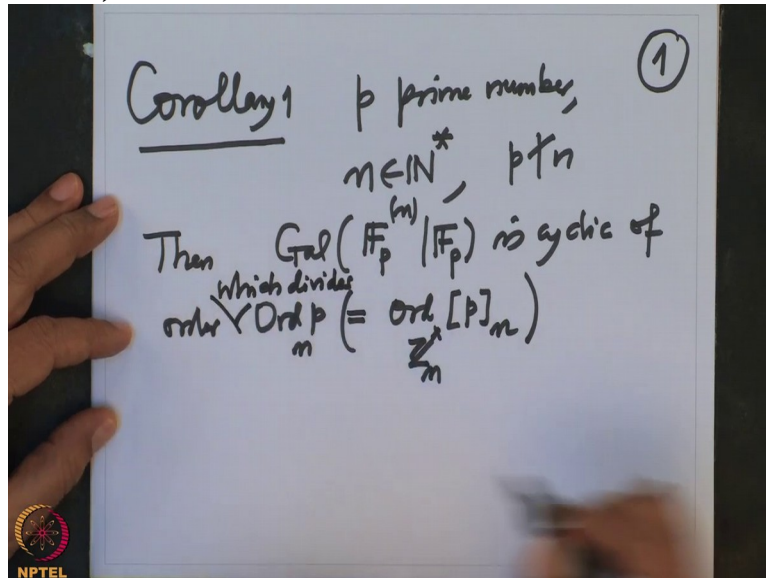 Corollary 1 p prime number, ①
n∈ℕ*, p∤n
Then Gal(𝔽_p^(n) | 𝔽_p) is cyclic of
which divides
order ∨ Ord_n p (= ord_{ℤ_n^×} [p]_n)
NPTEL